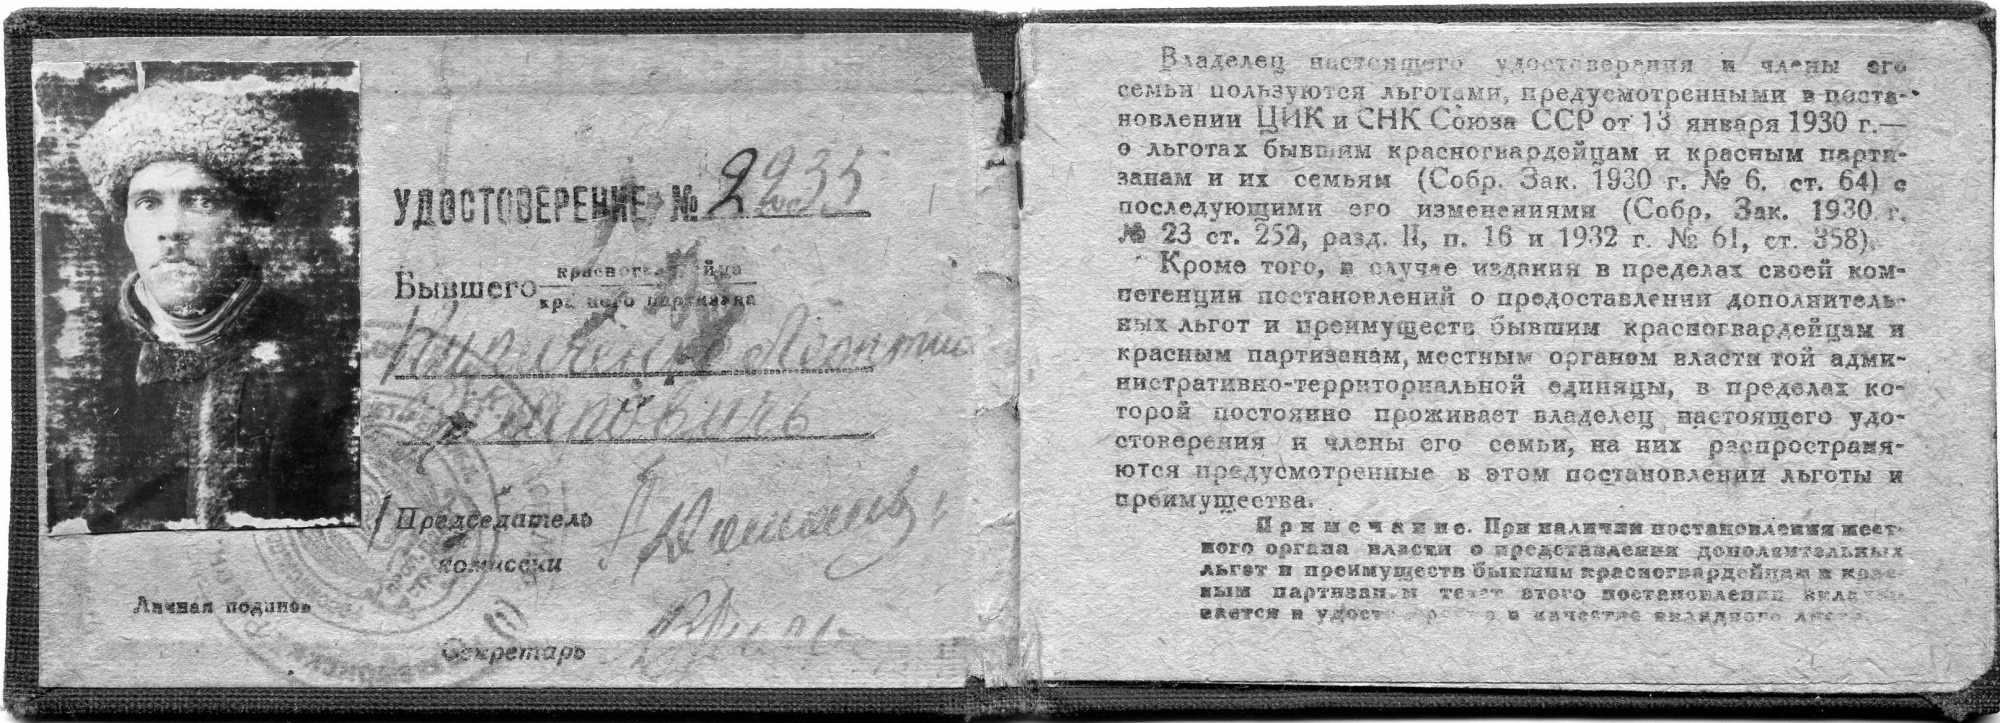 УДОСТОВЕРЕНИЕ № 2935
Бывшего
красногвардейца
красного партизана
Кириченко Леонтию
Председатель
комиссии
Личная подпись
Секретарь
Владелец настоящего удостоверения и члены его
семьи пользуются льготами, предусмотренными в поста-
новлении ЦИК и СНК Союза ССР от 13 января 1930 г.—
о льготах бывшим красногвардейцам и красным парти-
занам и их семьям (Собр. Зак. 1930 г. № 6. ст. 64) с
последующими его изменениями (Собр. Зак. 1930 г.
№ 23 ст. 252, разд. II, п. 16 и 1932 г. № 61, ст. 358).
Кроме того, в случае издания в пределах своей ком-
петенции постановлений о предоставлении дополнитель-
ных льгот и преимуществ бывшим красногвардейцам и
красным партизанам, местным органом власти той адми-
нистративно-территориальной единицы, в пределах ко-
торой постоянно проживает владелец настоящего удо-
стоверения и члены его семьи, на них распространя-
ются предусмотренные в этом постановлении льготы и
преимущества.
Примечание. При наличии постановления мест-
ного органа власти о представлении дополнительных
льгот и преимуществ бывшим красногвардейцам и крас-
ным партизанам текст этого постановления вклады-
вается в удостоверение в качестве вкладного листа.